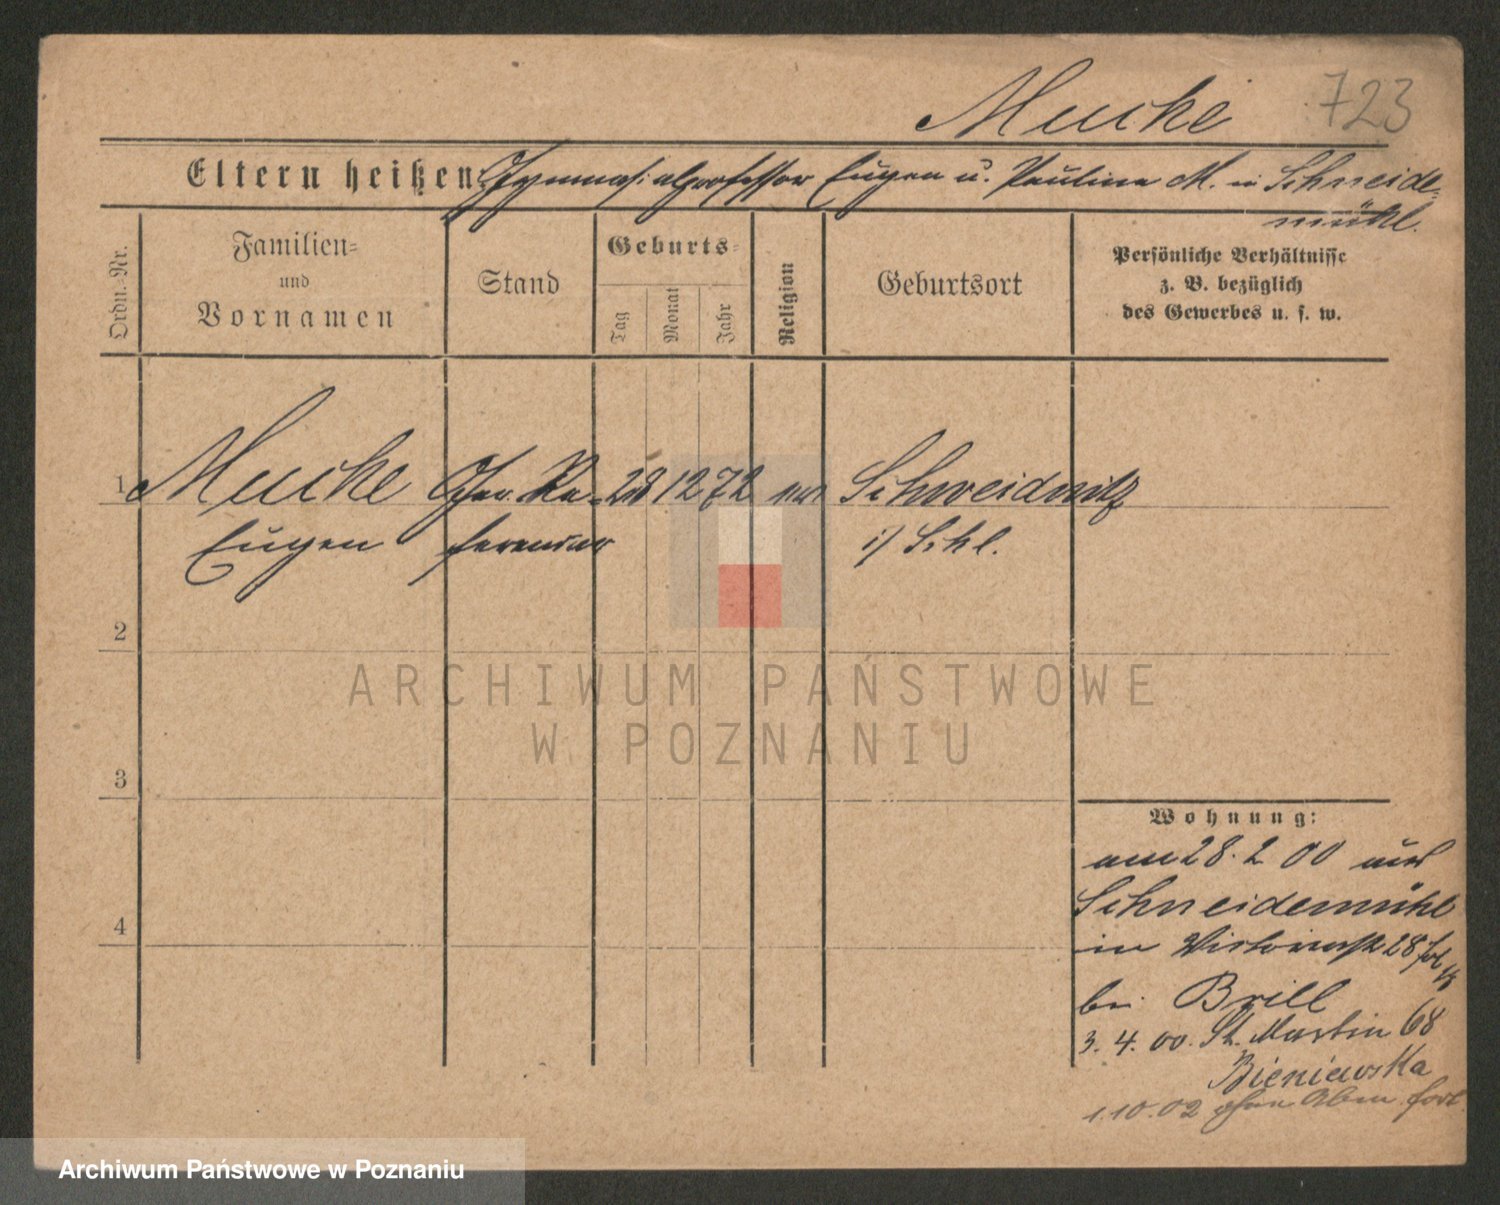 Mucke 723
Eltern heißen: Gymnasialprofessor Eugen u. Pauline M. in Schneide-
mühl.
Ordn.-Nr.
Familien-
und
Vornamen
Stand
Geburts-
Tag
Monat
Jahr
Religion
Geburtsort
Persönliche Verhältnisse
z. B. bezüglich
des Gewerbes u. s. w.
1 Mucke Ger. Re- 28 12 72 Schweidnitz
Eugen ferendar i/ Schl.
2
3
4
ARCHIWUM PAŃSTWOWE
W POZNANIU
Wohnung:
am 28. 2 00 aus
Schneidemühl
in Victoriastr 28
bei Brill
3. 4. 00. St. Martin 68
Bieniewska
1.10.02 ohne Abm. fort
Archiwum Państwowe w Poznaniu